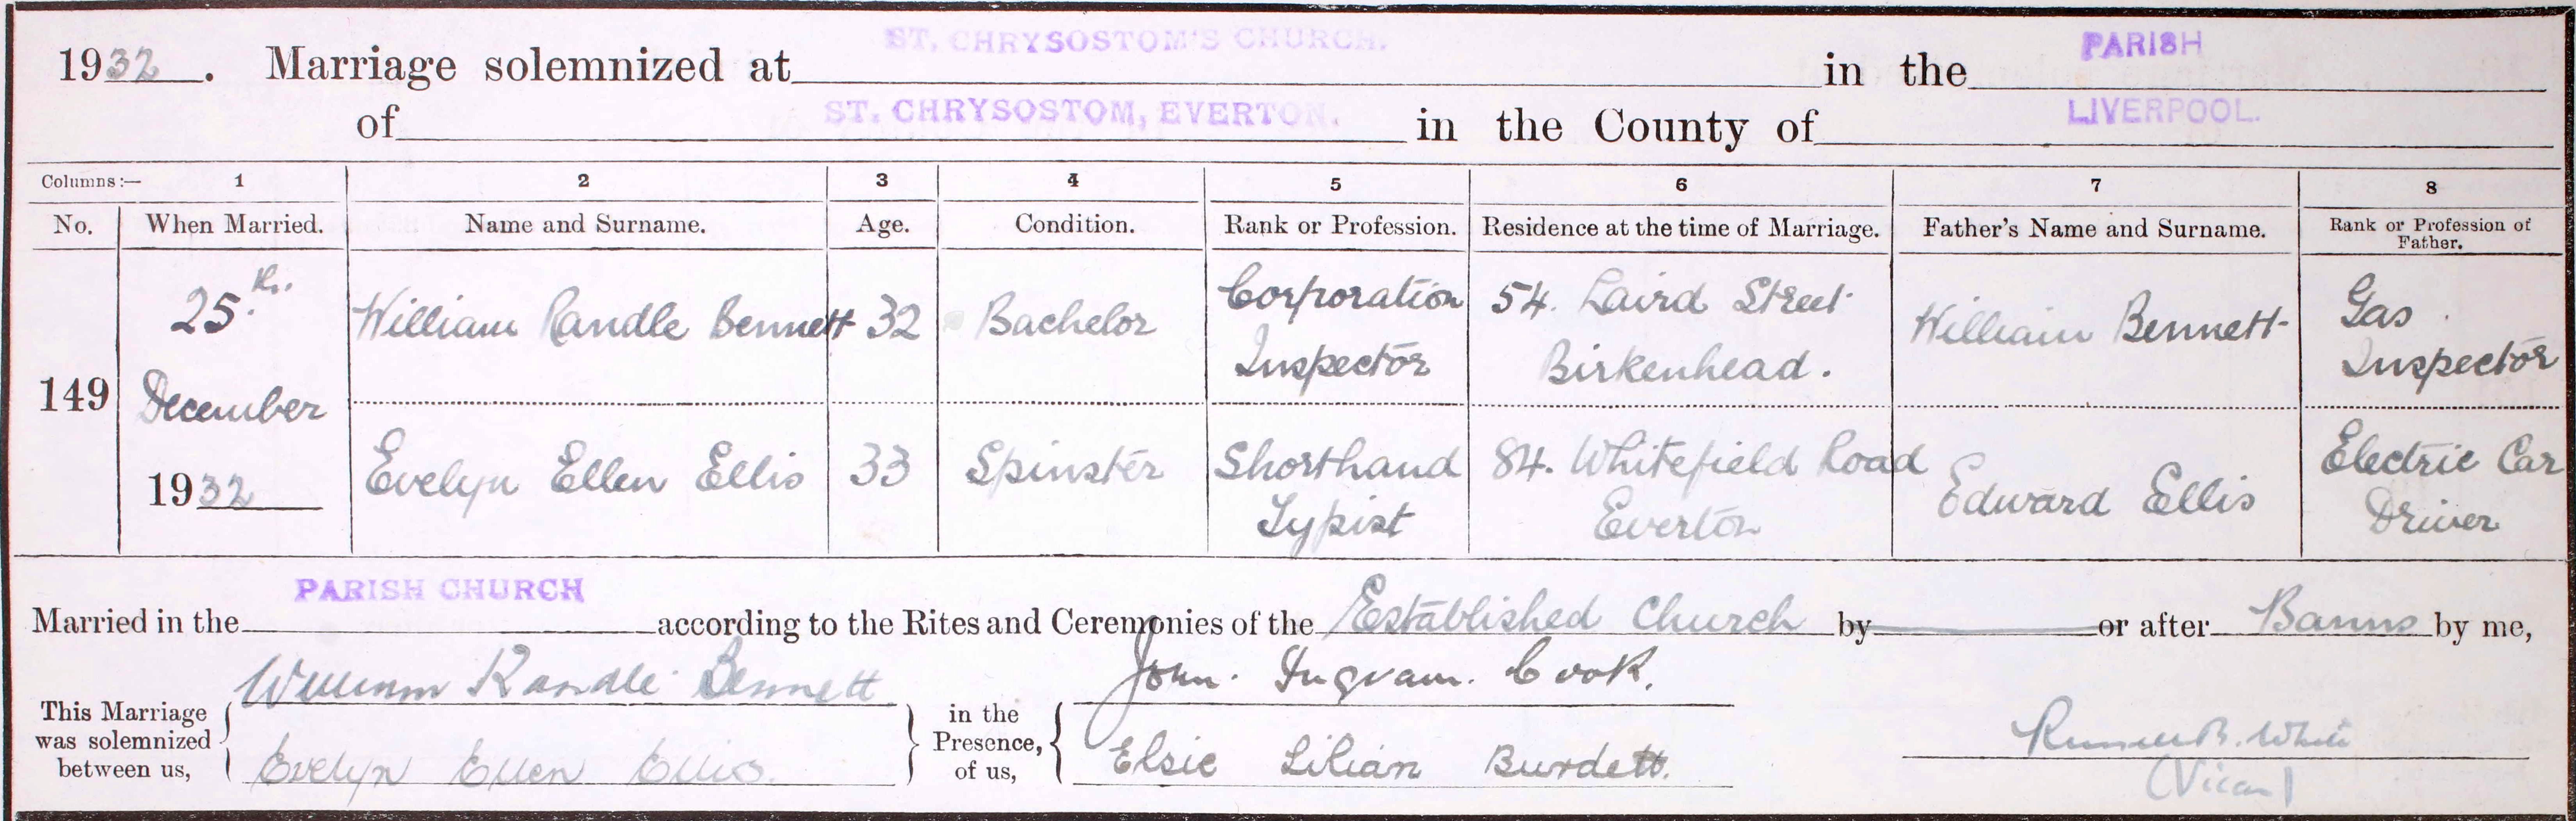 ST. CHRYSOSTOM'S CHURCH. PARISH
1932. Marriage solemnized at in the
ST. CHRYSOSTOM, EVERTON. LIVERPOOL.
of in the County of
Columns:— 1 2 3 4 5 6 7 8
No. When Married. Name and Surname. Age. Condition. Rank or Profession. Residence at the time of Marriage. Father's Name and Surname. Rank or Profession of Father.
149
25th.
December
1932
William Randle Bennett 32 Bachelor Corporation Inspector 54. Laird Street Birkenhead. William Bennett Gas Inspector
Evelyn Ellen Ellis 33 Spinster Shorthand Typist 84. Whitefield Road Everton Edward Ellis Electric Car Driver
PARISH CHURCH
Married in the according to the Rites and Ceremonies of the Established Church by or after Banns by me,
William Randle Bennett John. Ingram. Cook.
This Marriage was solemnized between us, in the Presence, of us,
Evelyn Ellen Ellis. Elsie Lilian Burdett.
B. White
(Vicar)